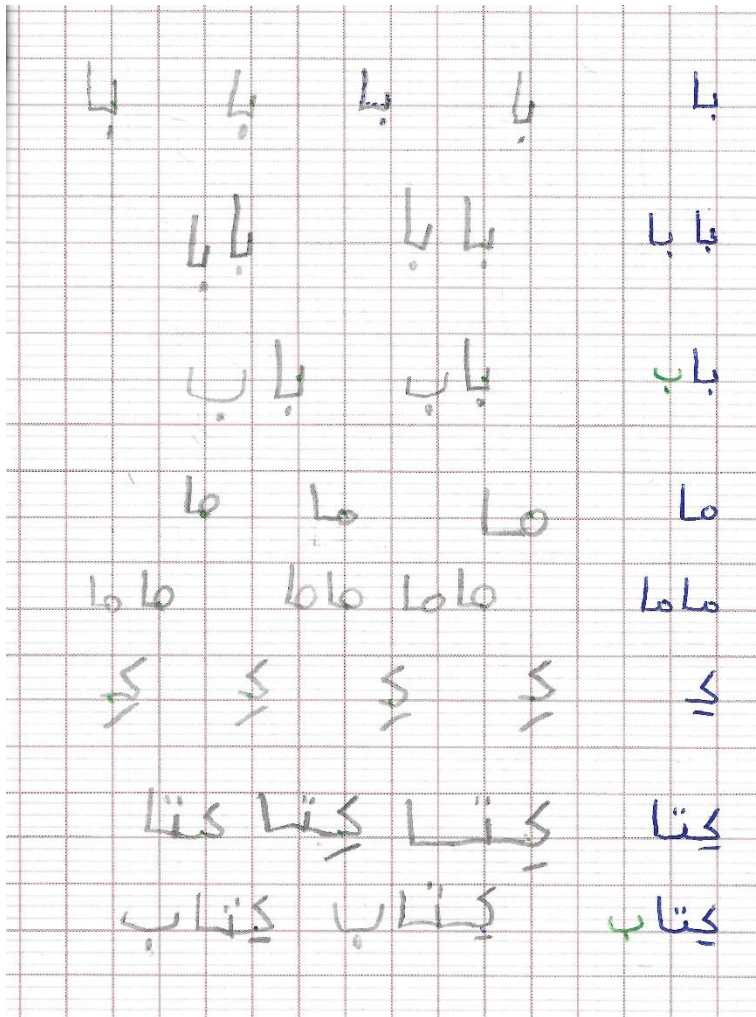 با با با با با
بابا بابا بابا
باب باب باب
ما ما ما ما
ماما ماما ماما ماما
كِ كِ كِ كِ كِ
كِتا كِتا كِتا كتا
كِتاب كِتاب كِتاب